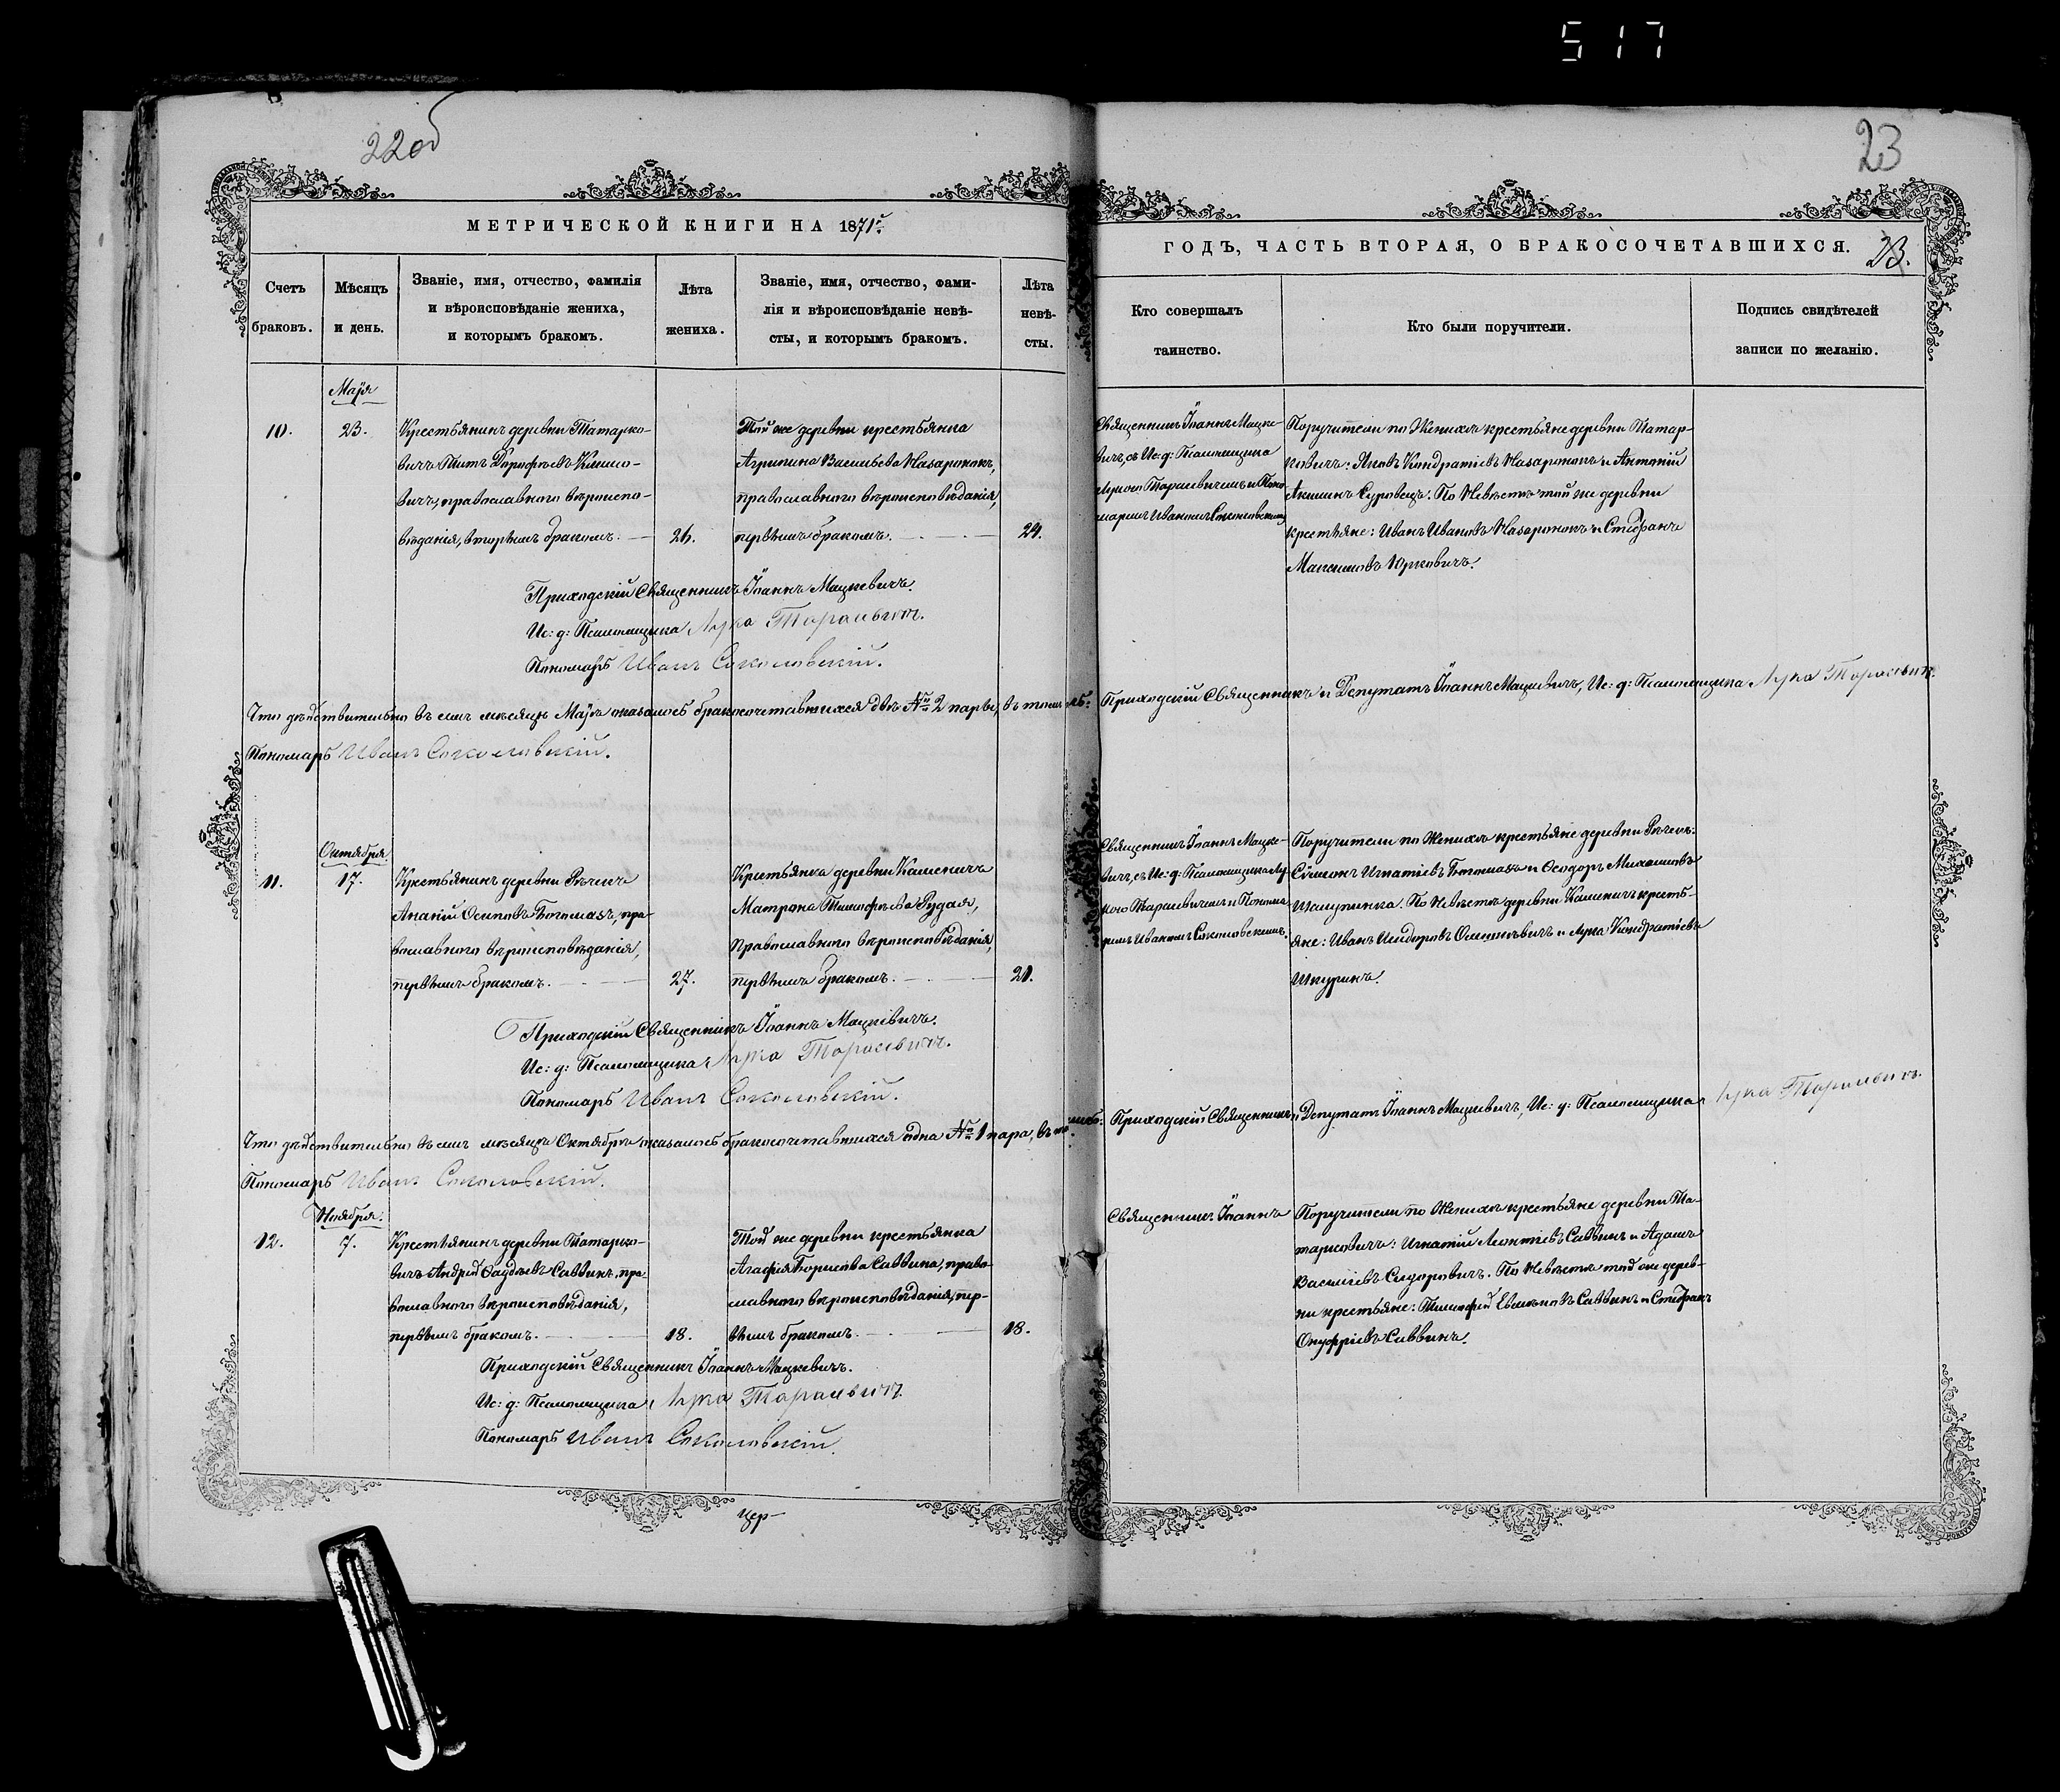 517
22об
23
МЕТРИЧЕСКОЙ КНИГИ НА 1871г.
ГОДЪ, ЧАСТЬ ВТОРАЯ, О БРАКОСОЧЕТАВШИХСЯ.
23.
Счетъ
браковъ.
Мѣсяцъ
и день.
Званіе, имя, отчество, фамилія
и вѣроисповѣданіе жениха,
и которымъ бракомъ.
Лѣта
жениха.
Званіе, имя, отчество, фами-
лія и вѣроисповѣданіе невѣ-
сты, и которымъ бракомъ.
Лѣта
невѣ-
сты.
Кто совершалъ
таинство.
Кто были поручители.
Подпись свидѣтелей
записи по желанію.
Маія
10.
23.
Крестьянинъ деревни Татарко-
вичъ Титъ Дороѳѣевъ Климо-
вичъ, православнаго вѣроиспо-
вѣданія, вторымъ бракомъ.
26.
Той же деревни крестьянка
Агрипина Васильева Назаронокъ,
православнаго вѣроисповѣданія,
первымъ бракомъ.
24.
Священникъ Іоаннъ Мацке-
вичъ, съ Ис: д: Псаломщика
Лукою Тарасевичемъ и Поно-
маремъ Иваномъ Соколовскимъ
Поручители по Женихѣ крестьяне деревни Татар-
ковичъ: Яковъ Кондратіевъ Назаронокъ и Антоній
Акиминъ Суровецъ. По Невѣстѣ той же деревни
крестьяне: Иванъ Ивановъ Назаронокъ и Стефанъ
Максимовъ Юрковичъ.
Приходскій Священникъ Іоаннъ Мацкевичъ.
Ис: д: Псаломщика Лука Тарасевичъ.
Пономарь Иванъ Соколовскій.
Что дѣйствительно въ семъ мѣсяцѣ Маіѣ оказалось бракосочетавшихся двѣ № 2 пары, въ томъ
Приходскій Священникъ и Депутатъ Іоаннъ Мацкевичъ, Ис: д: Псаломщика Лука Тарасевичъ.
Пономарь Иванъ Соколовскій.
Октября
11.
17.
Крестьянинъ деревни Рѣчекъ
Ананій Осиповъ Богомазъ, пра-
вославнаго вѣроисповѣданія,
первымъ бракомъ.
27.
Крестьянка деревни Кашеничъ
Матрона Тимоѳѣева Рудая,
Православнаго вѣроисповѣданія,
первымъ бракомъ.
21.
Священникъ Іоаннъ Мацке-
вичъ, съ Ис: д: Псаломщика Лу-
кою Тарасевичемъ и Понома-
ремъ Иваномъ Соколовскимъ.
Поручители по Женихѣ крестьяне деревни Рѣчекъ:
Сѵмеонъ Игнатіевъ Богомазъ и Ѳеодоръ Михаиловъ
По Невѣстѣ деревни Кашеничъ кресть-
яне: Иванъ Исидоровъ и Лука Кондратіевъ
Шкуринъ.
Приходскій Священникъ Іоаннъ Мацкевичъ.
Ис: д: Псаломщика Лука Тарасевичъ.
Пономарь Иванъ Соколовскій.
Что дѣйствительно въ семъ мѣсяцѣ Октябрѣ оказалось бракосочетавшихся одна № 1 пара, въ томъ
Приходскій Священникъ и Депутатъ Іоаннъ Мацкевичъ, Ис: д: Псаломщика Лука Тарасевичъ.
Пономарь Иванъ Соколовскій.
Ноября
12.
7.
Крестьянинъ деревни Татарко-
вичъ Андрей Ѳаддѣевъ Саввинъ, пра-
вославнаго вѣроисповѣданія,
первымъ бракомъ.
18.
Той же деревни крестьянка
Агафія Борисова Саввина, право-
славнаго вѣроисповѣданія, пер-
вымъ бракомъ.
18.
Священникъ Іоаннъ
Поручители по Женихѣ крестьяне деревни Та-
тарковичъ: Игнатій Леонтіевъ Саввинъ и Адамъ
Василіевъ Сидоровичъ. По Невѣстѣ той же дерев-
ни крестьяне: Тимоѳей Саввинъ и Стефанъ
Онуфріевъ Саввинъ.
Приходскій Священникъ Іоаннъ Мацкевичъ.
Ис: д: Псаломщика Лука Тарасевичъ
Пономарь Иванъ Соколовскій.
Цер-